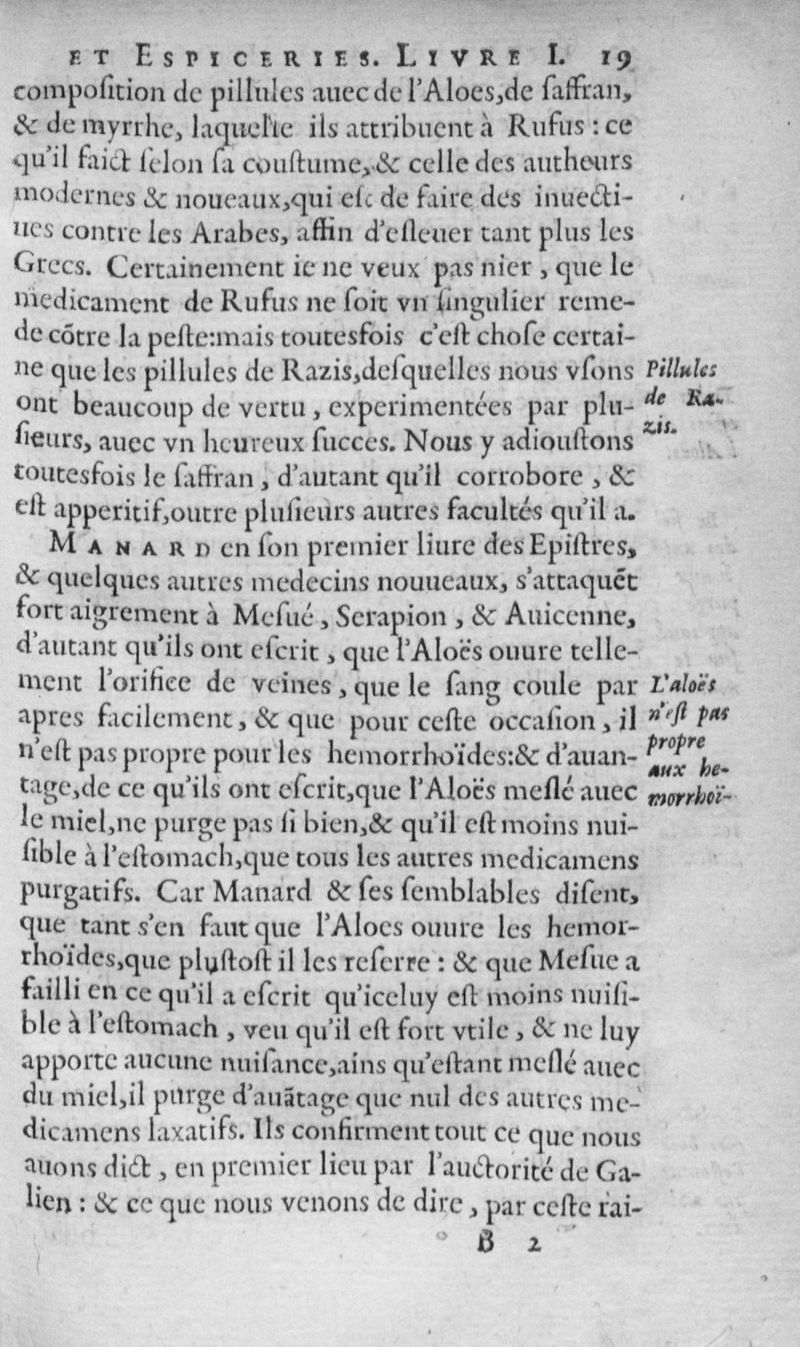 ET ESPICERIES. LIVRE I. 19
compoſition de pillules auec de l'Aloes,de ſaffran,
& de myrrhe, laquelle ils attribuent à Rufus : ce
qu'il faict ſelon ſa couſtume,& celle des autheurs
modernes & noueaux,qui eſt de faire des inuecti-
ues contre les Arabes, affin d'eſleuer tant plus les
Grecs. Certainement ie ne veux pas nier , que le
medicament de Rufus ne ſoit vn ſingulier reme-
de cōtre la peſte:mais toutesfois c'eſt choſe certai-
ne que les pillules de Razis,deſquelles nous vſons
ont beaucoup de vertu , experimentées par plu-
ſieurs, auec vn heureux ſucces. Nous y adiouſtons
toutesfois le ſaffran , d'autant qu'il corrobore , &
eſt apperitif,outre pluſieurs autres facultés qu'il a.
Pillules
de Ra-
zis.
MANARD en ſon premier liure des Epiſtres,
& quelques autres medecins nouueaux, s'attaquēt
fort aigrement à Meſué , Serapion , & Auicenne,
d'autant qu'ils ont eſcrit , que l'Aloës ouure telle-
ment l'orifice de veines , que le ſang coule par
apres facilement, & que pour ceſte occaſion , il
n'eſt pas propre pour les hemorrhoïdes:& d'auan-
tage,de ce qu'ils ont eſcrit,que l'Aloës meſlé auec
le miel,ne purge pas ſi bien,& qu'il eſt moins nui-
ſible à l'eſtomach,que tous les autres medicamens
purgatifs. Car Manard & ſes ſemblables diſent,
que tant s'en faut que l'Aloes ouure les hemor-
rhoïdes,que pluſtoſt il les reſerre : & que Meſue a
failli en ce qu'il a eſcrit qu'iceluy eſt moins nuiſi-
ble à l'eſtomach , veu qu'il eſt fort vtile , & ne luy
apporte aucune nuiſance,ains qu'eſtant meſlé auec
du miel,il purge d'auātage que nul des autres me-
dicamens laxatifs. Ils confirment tout ce que nous
auons dict , en premier lieu par l'auctorité de Ga-
lien : & ce que nous venons de dire , par ceſte rai-
L'aloës
n'eſt pas
propre
aux he-
morrhoï-
B 2